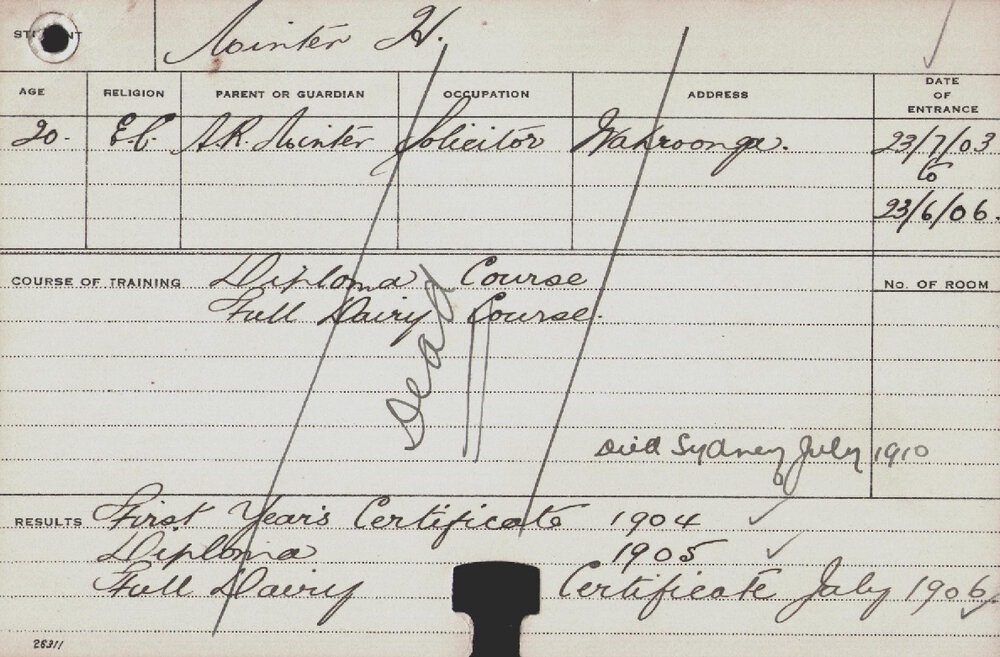 STUDENT Minter H.
AGE RELIGION PARENT OR GUARDIAN OCCUPATION ADDRESS DATE OF ENTRANCE
20. E.C. A.R. Minter Solicitor Wahroonga. 23/7/03
to
23/6/06.
COURSE OF TRAINING Diploma Course No. OF ROOM
Full Dairy Course.
Dead
Died Sydney July 1910
RESULTS First Year's Certificate 1904
Diploma 1905
Full Dairy Certificate July 1906
26311